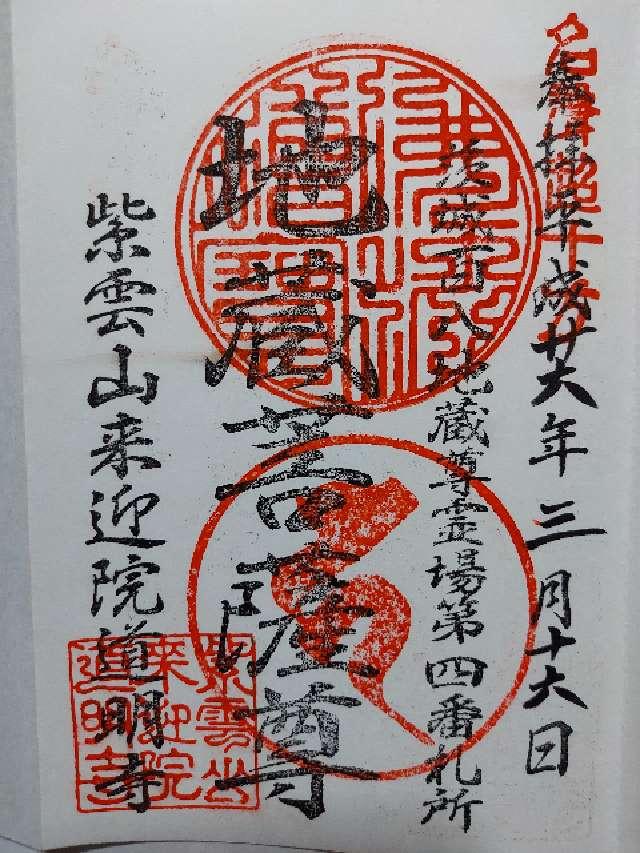 奉拝 平成廿六年三月十六日
茨城百八地蔵尊霊場第四番札所
地蔵菩薩尊
紫雲山来迎院道明寺
紫雲山来迎院道明寺